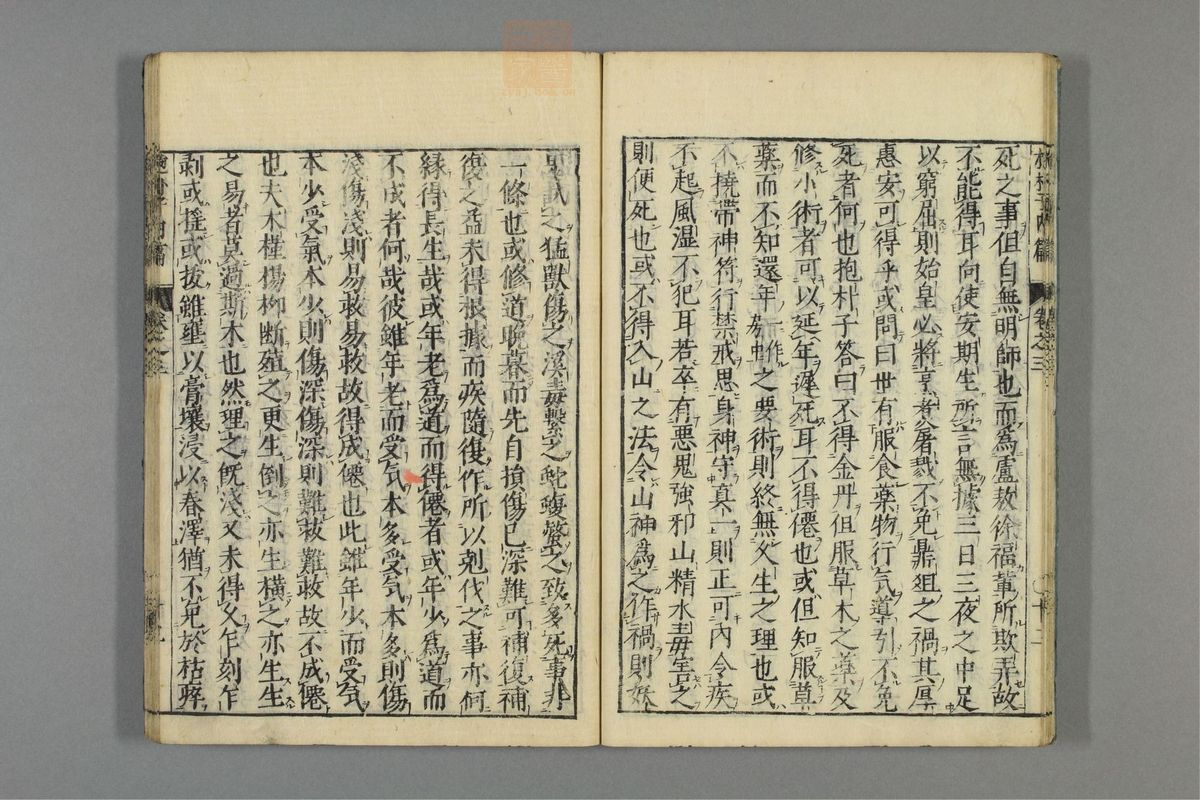 死之事但自無明師也而爲盧敖徐福輩所欺弄故
不能得耳向使安期生所言無據三日三夜之中足
以窮屈則始皇必將烹煑屠戮不免鼎俎之禍其厚
惠安可得乎或問曰世有服食藥物行気導引不免
死者何也抱朴子答曰不得金丹但服草木之藥及
修小術者可以延年遲死耳不得僊也或但知服草
藥而不知還年之要術則終無久生之理也或
不撓帶神符行禁戒思身神守真一則正可內令疾
不起風湿不犯耳若卒有悪鬼強邪山精水毒害之
則便死也或不得入山之法令山神爲之作禍則妖
鬼試之猛獸傷之溪毒繋之蛇蝮螫之致多死事非
一條也或修道晩暮而先自損傷已深難可補復補
復之益未得根據而疾隨復作所以剋伐之事亦何
縁得長生哉或年老爲道而得僊者或年少爲道而
不成者何哉彼雖年老而受気本多受気本多則傷
淺傷淺則易救易救故得成僊也此雖年少而受気
本少受氣本少則傷深傷深則難救難救故不成僊
也夫木槿楊柳断殖之更生倒之亦生横之亦生生
之易者莫過斯木也然埋之旣淺又未得久乍刻乍
剥或揺或拔雖壅以膏壤浸以春澤猶不免於枯瘁